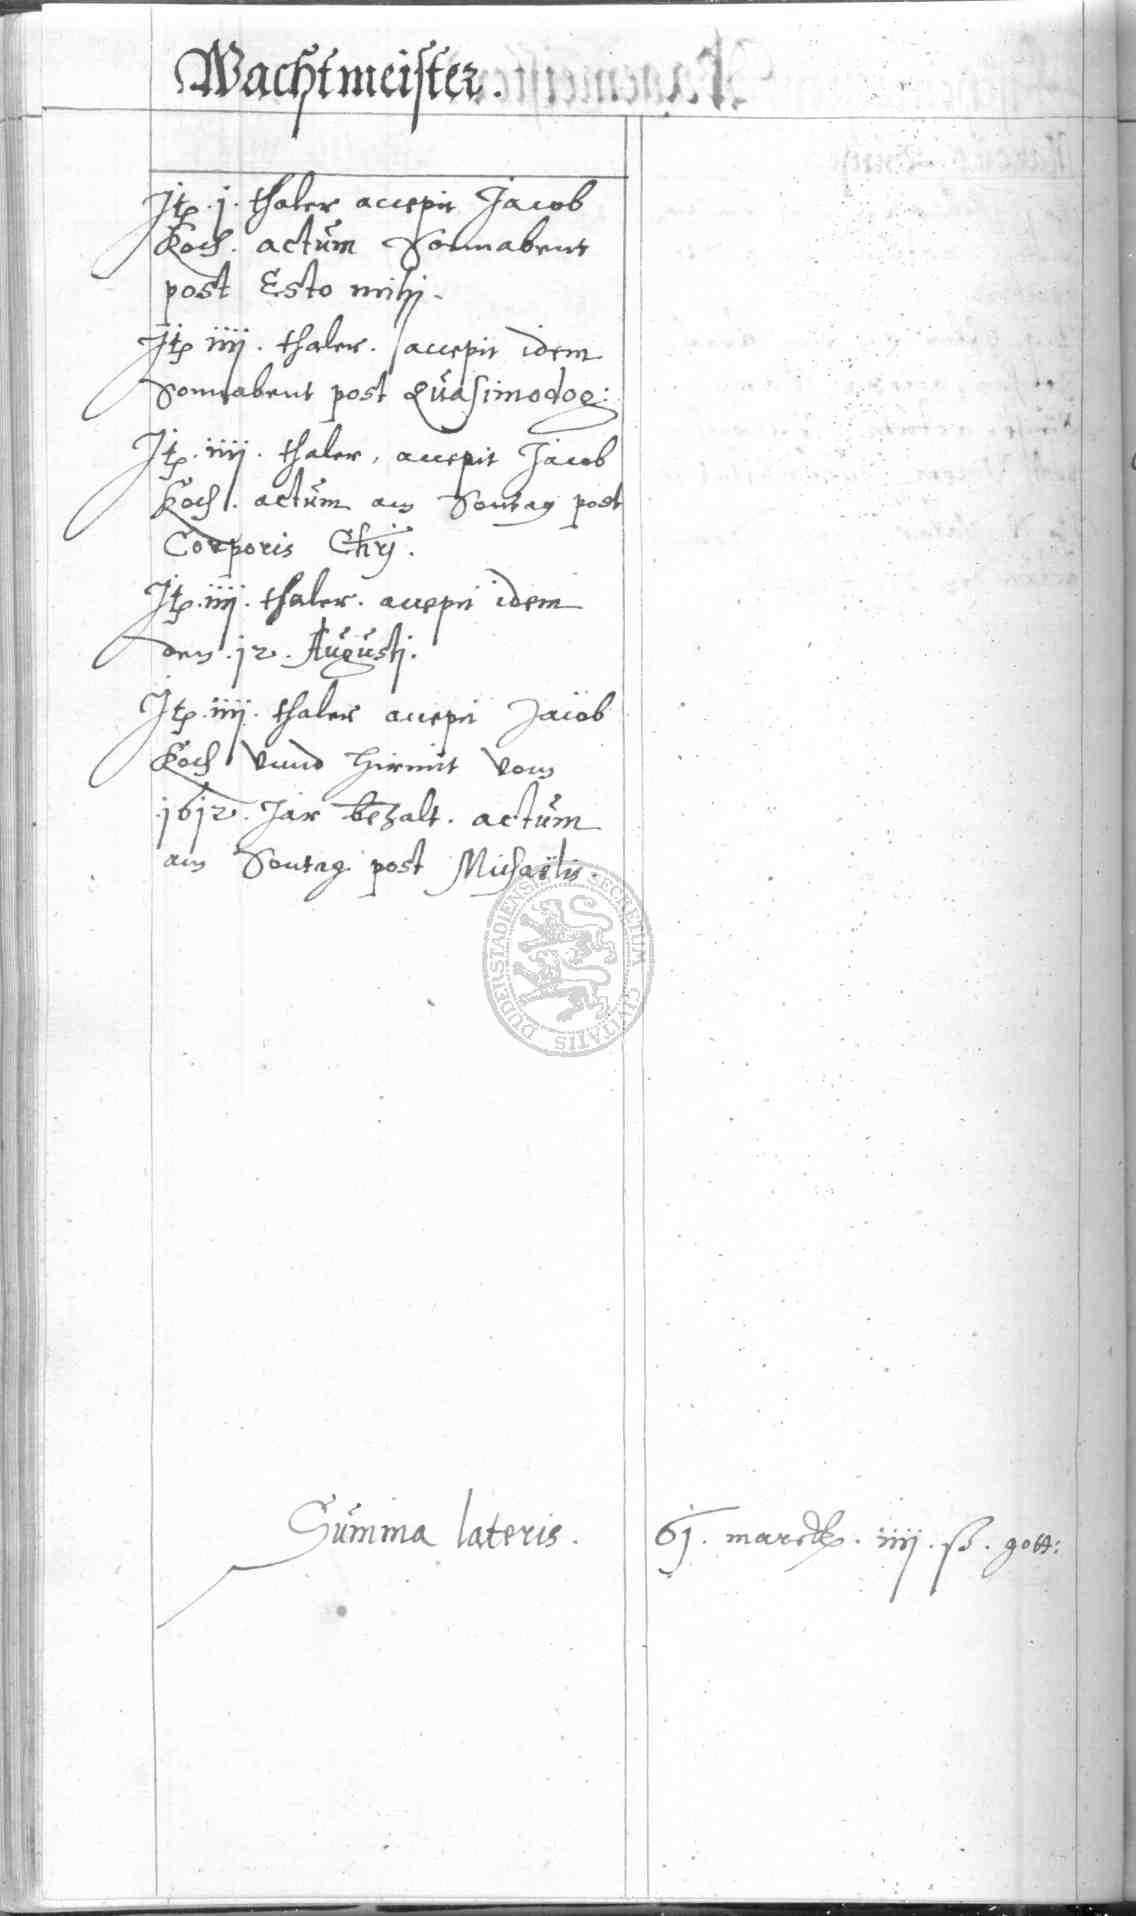 Wachtmeister.
Jtem .j. thaler accepit Jacob
Koch. actum Sonnabent
post Esto mihj.
Jtem iiij. thaler. accepit idem
Sonnabent post Quasimodog:
Jtem .iiij. thaler, accepit Jacob
Koch. actum am Sontag post
Corporis Chrj.
Jtem .iiij. thaler. accepit idem
den .12. Augustj.
Jtem .iiij. thaler accepit Jacob
Koch vnnd hirmit vom
.1612. Jar bezalt. actum
am Sontag post Michaelis.
DUDERSTADIENSIS SECRETUM CIVITATIS
Summa lateris. 61. marck. iiij. ß. gott: